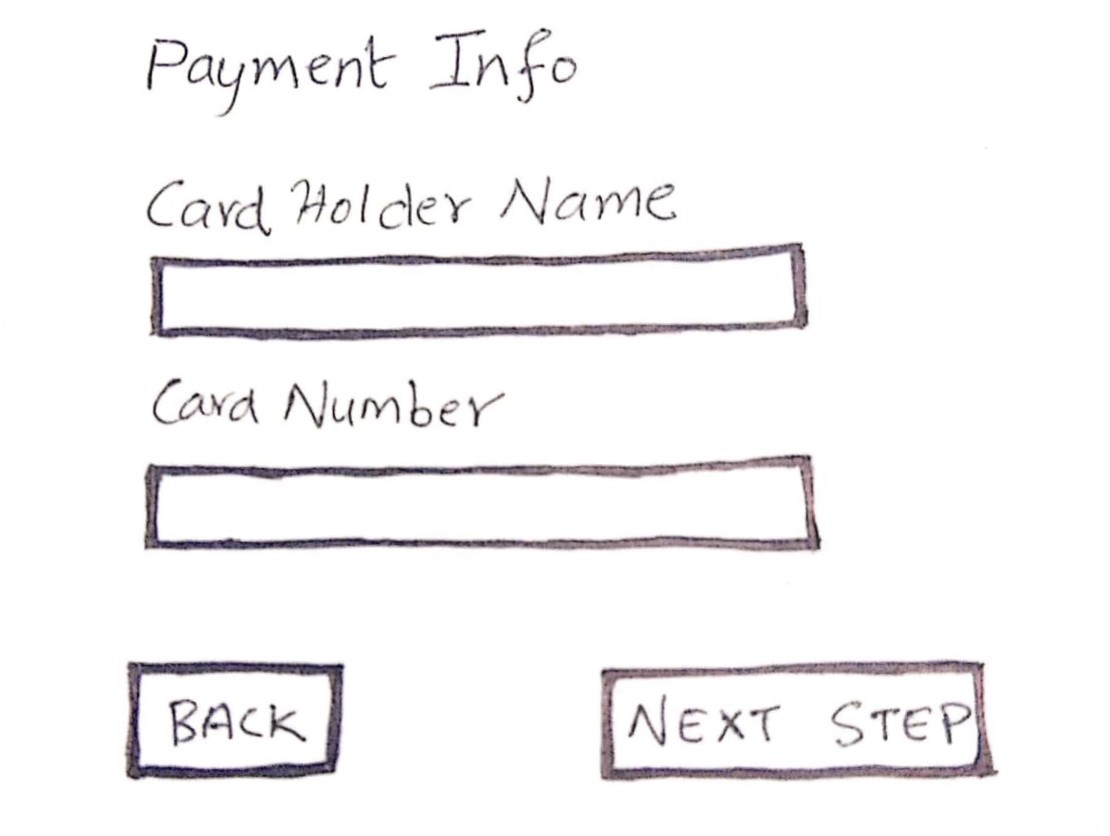 Payment Info
Card Holder Name
Card Number
BACK
NEXT STEP